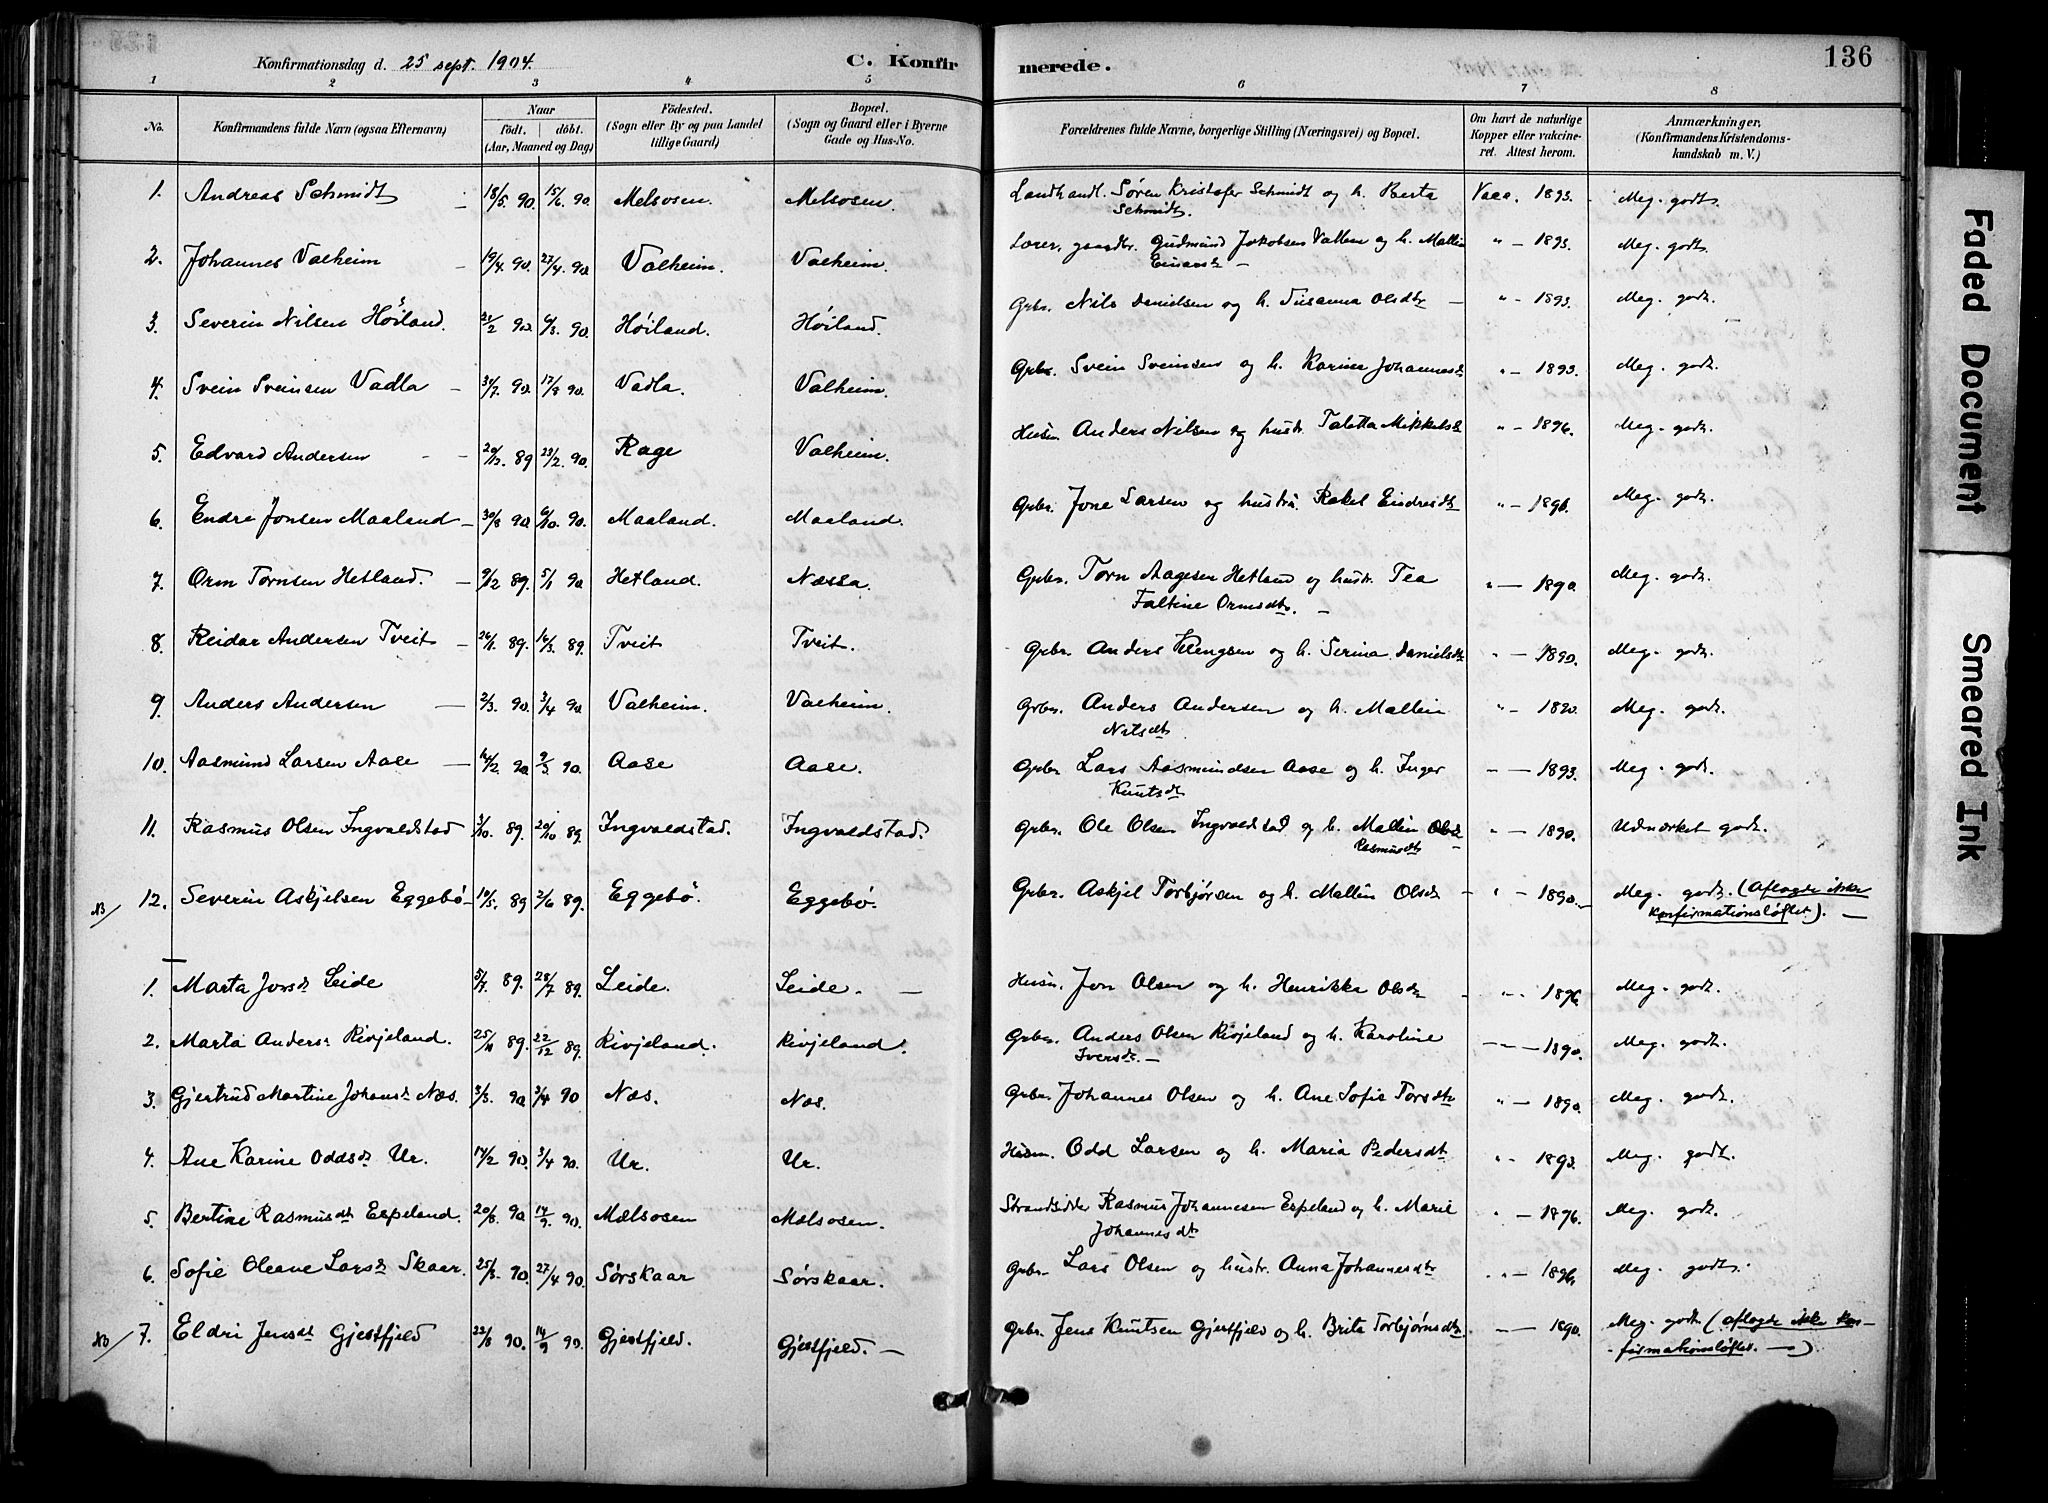 Konfirmationsdag d. 25 sept. 1904.
C. Konfirmerede.
136
1 2 3 4 5 6 7 8
No.
Konfirmandens fulde Navn (ogsaa Efternavn)
Naar
født. døbt.
(Aar, Maaned og Dag)
Fødested.
(Sogn eller By og paa Landet
tillige Gaard)
Bopæl.
(Sogn og Gaard eller i Byerne
Gade og Hus-No.
Forældrenes fulde Navne, borgerlige Stilling (Næringsvei) og Bopæl.
Om havt de naturlige
Kopper eller vakcine-
ret. Attest herom.
Anmærkninger,
(Konfirmandens Kristendoms-
kundskab m. V.)
1. Andreas Schmidt 18/5. 90. 15/6. 90. Melsosen. Melsosen. Landhandl. Søren Kristofer Schmidt og h. Berta Vacc. 1893. Meg. godt.
Schmidt.
2. Johannes Valheim 19/4. 90. 27/4. 90. Valheim. Valheim. Lærer, gaardbr. Gudmund Jakobsen Vallen og h. Mallin " — 1893. Meg. godt.
Einarsdt —
3. Severin Nilsen Høiland. 90. 90. Høiland. Høiland. Grbr. Nils Danielsen og h. Susanna Olsdtr — " — 1893. Meg. godt.
4. Svein Sveinsen Vadla — 31/7. 90. 17/8 90. Vadla. Valheim. Grbr. Svein Sveinsen og h. Karine Johannesdt " — 1893. Meg. godt.
5. Edvard Andersen — — 20/12. 89 23/2. 90. Rage Valheim. Husm. Anders Nilsen og hustr. Taletta Mikkelsdt " — 1896. Meg. godt.
6. Endre Jonsen Maaland — 30/8 90. 6/10. 90. Maaland. Maaland. Grbr. Jone Larsen og hustru Rakel Eindresdt " — 1896. Meg. godt.
7. Orm Tornsen Hetland. — 9/12 89. 5/1 90. Hetland. Næssa. Grbr. Torn Aagesen Hetland og hustr. Tea " — 1890. Meg. godt.
Faltine Ormsdtr. —
8. Reidar Andersen Tveit — 26/1. 89. 16/3. 89. Tveit Tveit. Grbr. Anders Klengsen og h. Serina Danielsdtr " — 1890. Meg. godt.
9. Anders Andersen — 2/3. 90. 3/4 90. Valheim. Valheim. Grbr. Anders Andersen og h. Mallin " — 1890. Meg. godt.
Nilsdt
10. Aasmund Larsen Aase — 90. 9/3. 90. Aase Aase. Grbr Lars Aasmundsen Aase og h. Inger — — 1893. Meg. godt.
Knutsdt
11. Rasmus Olsen Ingvaldstad 3/10. 89. 20/10 89. Ingvaldstad. Ingvaldstad. Grbr. Ole Olsen Ingvaldstad og h. Mallin " — 1890. Udmærket godt.
Rasmusdt
NB/ 12. Severin Askjelsen Eggebø — 89 2/6 89. Eggebø Eggebø. Grbr. Askjel Torbjørsen og h. Mallin Olsdt — " — 1890. Meg. godt. (Aflagde ikke
Konfirmationsløftet). —
1. Marta Jonsdt Leide 5/7. 89. 28/7 89. Leide. Leide. — Husm. Jon Olsen og h. Henrikka Olsdt — " — 1896. Meg. godt.
2. Marta Andersdt Rivjeland. 89. 22/12 89. Rivjeland. Rivjeland. Grbr. Anders Olsen Rivjeland og h. Karoline — — 1890. Meg. godt.
Iversdt. —
3. Gjertrud Martine Johansdt Næs. 3/3. 90 3/4 90 Næs. Næs. Grbr. Johannes Olsen og h. Ane Sofie Torsdtr " — 1890. Meg. godt.
4. Ane Karine Oddsdt Ur. 17/2 90. 3/4 90. Ur. Ur. Husm. Odd Larsen og h. Maria Pedersdt " — 1893. Meg. godt.
5. Bertine Rasmusdt Espeland. 20/8. 90 14/9. 90. Mælsosen Mælsosen. Strandsidder Rasmus Johannesen Espeland og h. Marie " — 1896. Meg. godt.
Johannesdt
6. Sofie Oleane Larsdt Skaar. 25/3. 90. 27/4 90. Sørskaar Sørskaar. Grbr. Lars Olsen og hustr. Anna Johannesdtr " — 1896. Meg. godt.
NB/ 7. Eldri Jensdt Gjestfjeld 22/8 90. 14/9 90. Gjestfjeld. Gjestfjeld. — Grbr. Jens Knutsen Gjestfjeld og h. Brita Torbjørnsdtr. — — 1890. Meg. godt (aflagde ikke Kon-
firmationsløftet. —)
Faded Document
Smeared Ink